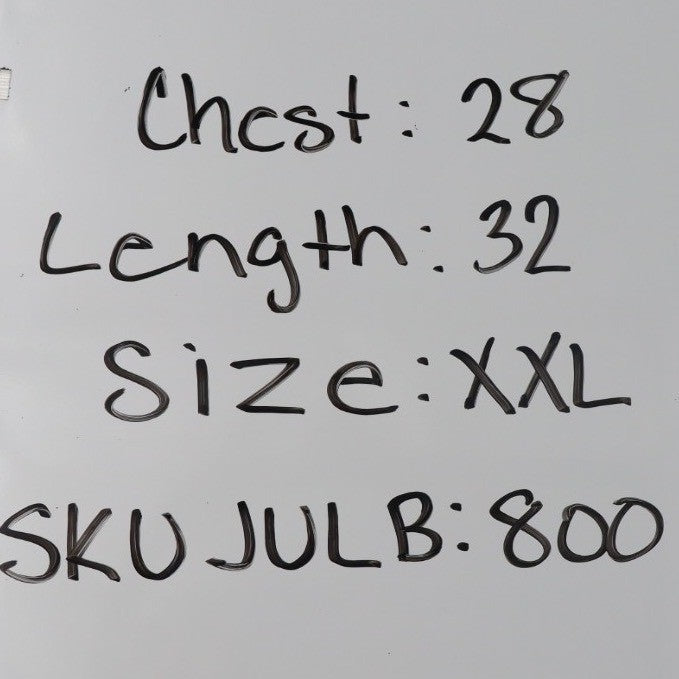 Chest: 28
Length: 32
Size: XXL
SKU JULB: 800